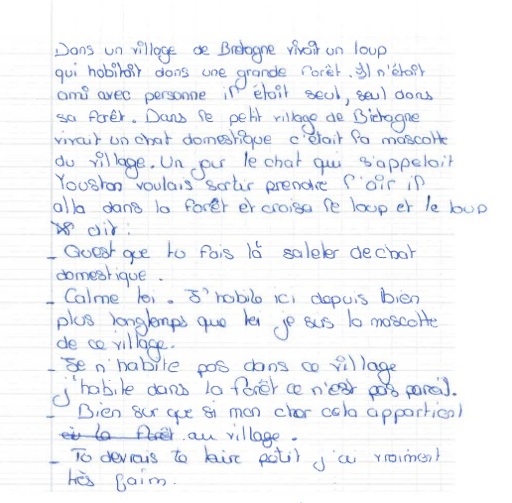 Dans un village de Bretagne vivait un loup
qui habitait dans une grande forêt. Il n'était
ami avec personne il était seul, seul dans
sa forêt. Dans le petit village de Bretagne
vivait un chat domestique c'était la mascotte
du village. Un jour le chat qui s'appelait
Youston voulais sortir prendre l'air il
alla dans la forêt et croisa le loup et le loup
dit :
- Quest que tu fais là saleter de chat
domestique.
- Calme toi. J'habite ici depuis bien
plus longtemps que toi je suis la mascotte
de ce village.
- Je n'habite pas dans ce village
j'habite dans la forêt ce n'est pas pareil.
- Bien sur que si mon cher cela appartient
au village.
- Tu devrais te taire petit j'ai vraiment
très faim.